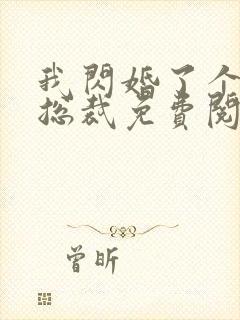 我閃婚了个
總裁免費閱
曾昕